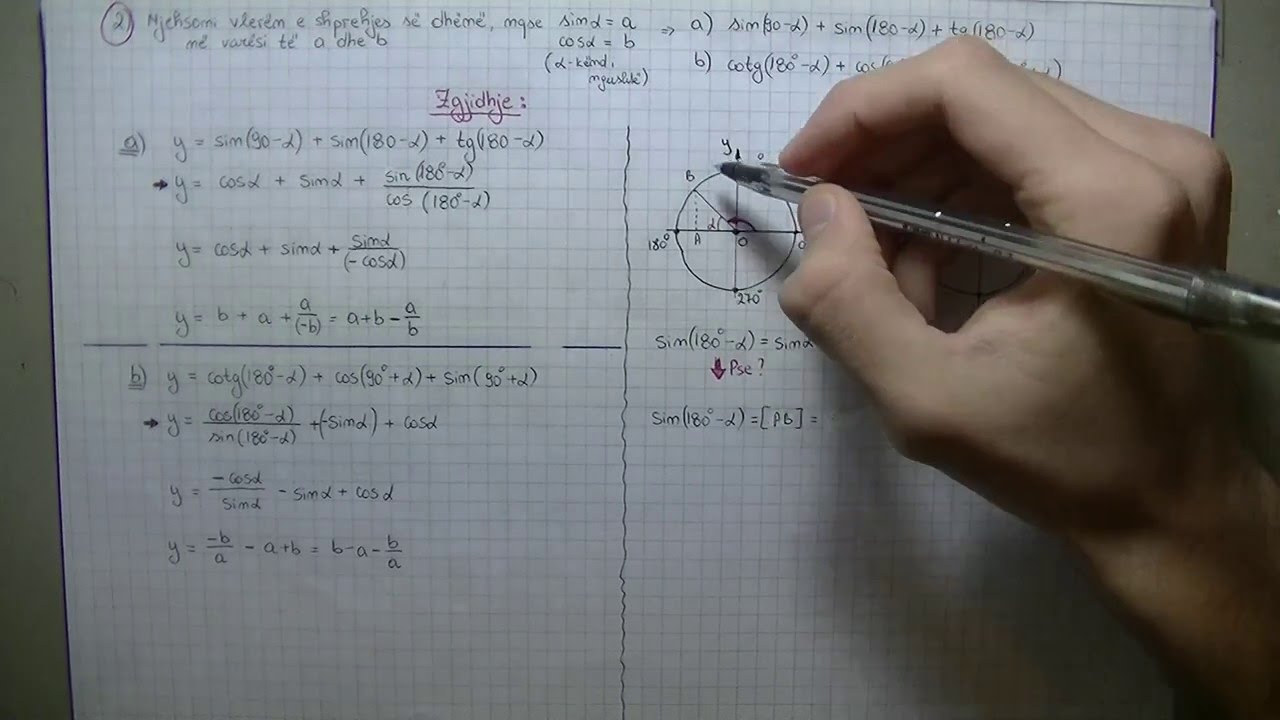 2) Njehsoni vlerën e shprehjes së dhënë, nqse sinα = a ⇒ a) sin(90-α) + sin(180-α) + tg(180-α)
në varësi të a dhe b cosα = b
(α-këndi ngushtë) b) cotg(180°-α) +
Zgjidhje:
a) y = sin(90-α) + sin(180-α) + tg(180-α)
→ y = cosα + sinα + sin(180°-α)/cos(180°-α)
y = cosα + sinα + sinα/(-cosα)
y = b + a + a/(-b) = a+b - a/b
b) y = cotg(180°-α) + cos(90°+α) + sin(90°+α)
→ y = cos(180°-α)/sin(180°-α) + (-sinα) + cosα
y = -cosα/sinα - sinα + cosα
y = -b/a - a+b = b-a - b/a
y
B
α
180° A O
270°
sin(180°-α) = sinα
↓ Pse?
sin(180°-α) = [AB] =